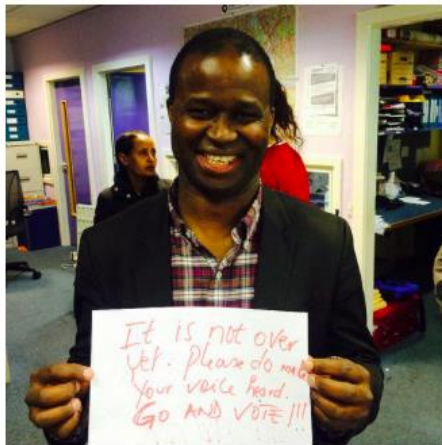 It is not over
yet. please do make
your voice heard.
GO AND VOTE!!!